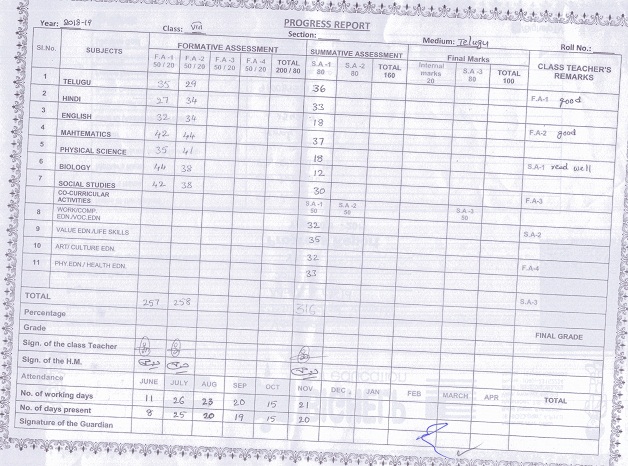 PROGRESS REPORT
Year: 2018-19 Class: VIII Section: Medium: Telugu Roll No.:
Sl.No. SUBJECTS FORMATIVE ASSESSMENT SUMMATIVE ASSESSMENT Final Marks CLASS TEACHER'S REMARKS
F.A -1 50 / 20 F.A -2 50 / 20 F.A -3 50 / 20 F.A -4 50 / 20 TOTAL 200 / 80 S.A -1 80 S.A -2 80 TOTAL 160 Internal marks 20 S.A -3 80 TOTAL 100
1 TELUGU 35 29 36
F.A-1 good
2 HINDI 27 34 33
3 ENGLISH 32 34 18
F.A-2 good
4 MAHTEMATICS 42 44 37
5 PHYSICAL SCIENCE 35 41 18
S.A-1 read well
6 BIOLOGY 44 38 12
7 SOCIAL STUDIES 42 38 30
F.A-3
CO-CURRICULAR ACTIVITIES S.A -1 50 S.A -2 50 S.A -3 50
8 WORK/COMP. EDN./VOC.EDN 32
S.A-2
9 VALUE EDN./LIFE SKILLS 35
10 ART/ CULTURE EDN. 32
F.A-4
11 PHY.EDN./ HEALTH EDN. 33
S.A-3
TOTAL 257 258 316
Percentage
Grade FINAL GRADE
Sign. of the class Teacher
Sign. of the H.M.
Attendance JUNE JULY AUG SEP OCT NOV DEC JAN FEB MARCH APR TOTAL
No. of working days 11 26 23 20 15 21
No. of days present 8 25 20 19 15 20
Signature of the Guardian